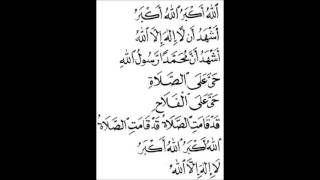 اللهُ أَكْبَرُ اللهُ أَكْبَرُ
أَشْهَدُ أَن لَّا إِلٰهَ إِلَّا اللهُ
أَشْهَدُ أَنَّ مُحَمَّدًا رَّسُولُ اللهِ
حَيَّ عَلَى الصَّلَاةِ
حَيَّ عَلَى الْفَلَاحِ
قَدْ قَامَتِ الصَّلَاةُ قَدْ قَامَتِ الصَّلَاةُ
اللهُ أَكْبَرُ اللهُ أَكْبَرُ
لَا إِلٰهَ إِلَّا اللهُ